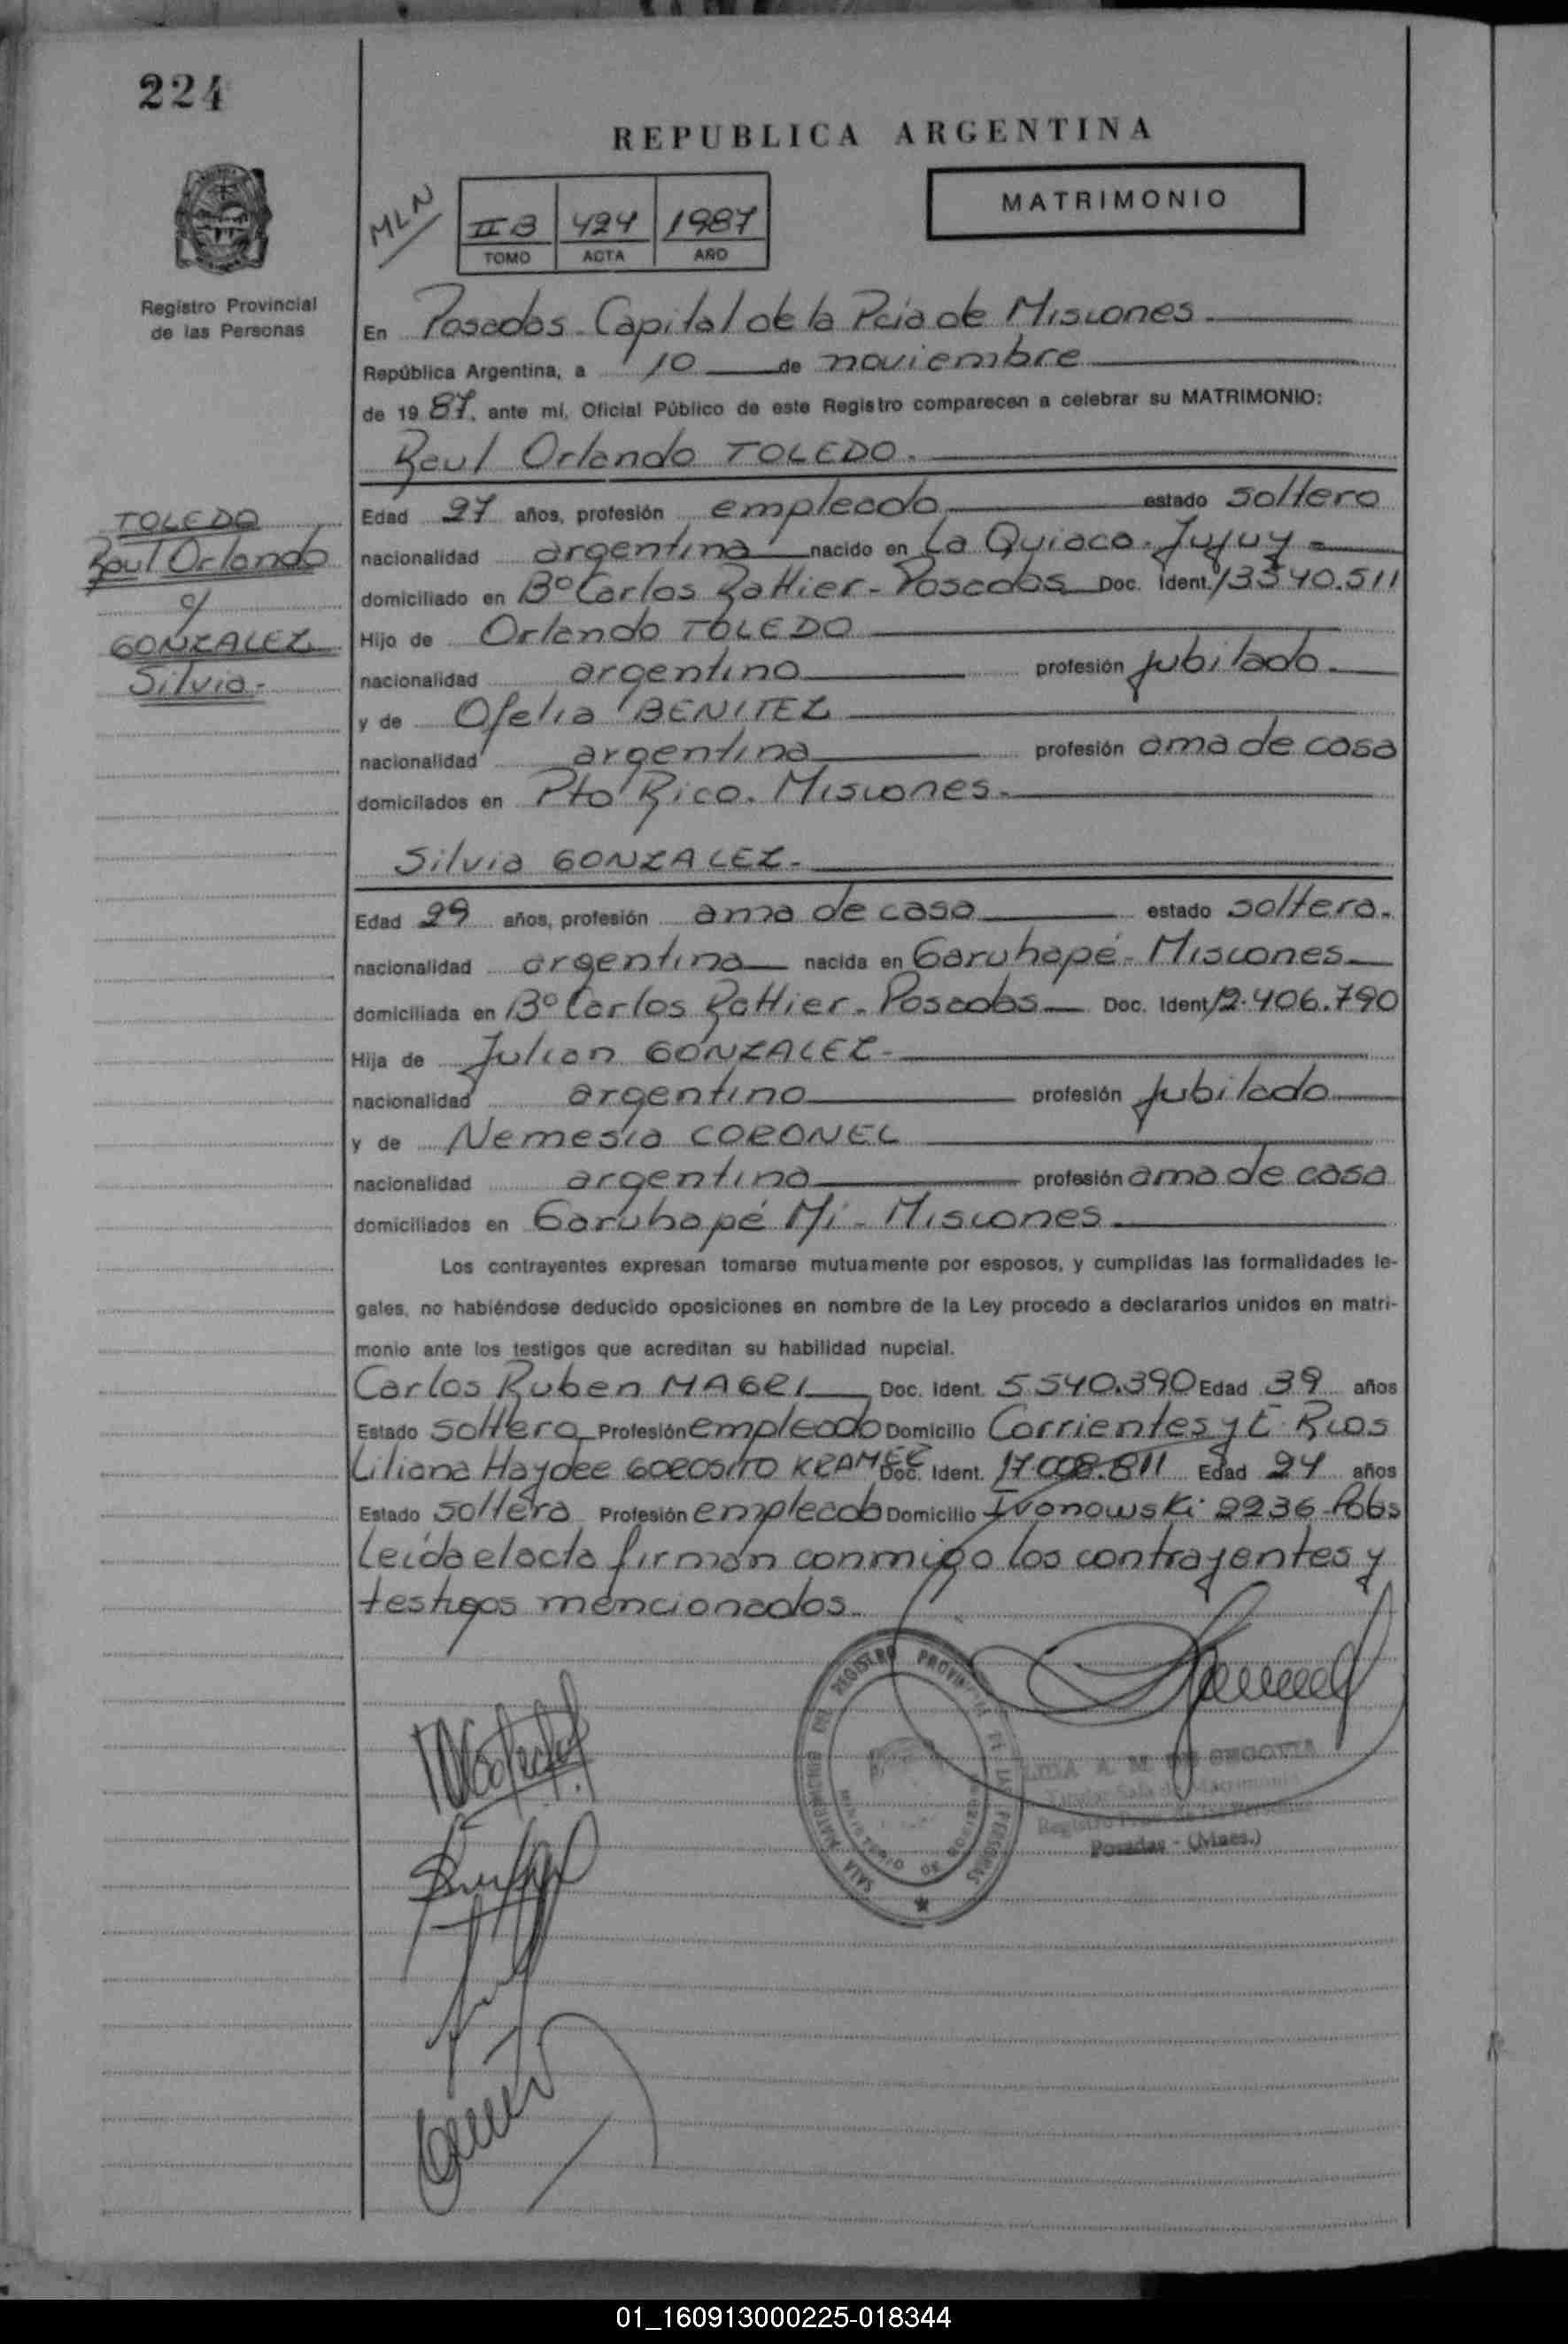 224
REPUBLICA ARGENTINA
MATRIMONIO
MLN
II B 424 1987
TOMO ACTA AÑO
Registro Provincial
de las Personas
En Posadas - Capital de la Pcia de Misiones
República Argentina, a 10 de noviembre
de 1987, ante mí, Oficial Público de este Registro comparecen a celebrar su MATRIMONIO:
Raul Orlando TOLEDO.
TOLEDO
Raul Orlando
c/
GONZALEZ
Silvia.-
Edad 27 años, profesión empleado estado soltero
nacionalidad argentina nacido en La Quiaca - Jujuy
domiciliado en B° Carlos Rattier - Posadas Doc. Ident. 13540.511
Hijo de Orlando TOLEDO
nacionalidad argentino profesión jubilado.
y de Ofelia BENITEZ
nacionalidad argentina profesión ama de casa
domicilados en Pto Rico. Misiones.
Silvia GONZALEZ.
Edad 29 años, profesión ama de casa estado soltera.
nacionalidad argentina nacida en Garuhapé - Misiones
domiciliada en B° Carlos Rattier - Posadas Doc. Ident. 12.406.790
Hija de Julian GONZALEZ.
nacionalidad argentino profesión jubilado
y de Nemesia CORONEL
nacionalidad argentina profesión ama de casa
domiciliados en Garuhapé Mi - Misiones
Los contrayentes expresan tomarse mutuamente por esposos, y cumplidas las formalidades le-
gales, no habiéndose deducido oposiciones en nombre de la Ley procedo a declararlos unidos en matri-
monio ante los testigos que acreditan su habilidad nupcial.
Carlos Ruben MAGRI Doc. Ident. 5.540.390 Edad 39 años
Estado soltero Profesión empleado Domicilio Corrientes y E. Rios
Liliana Haydee GOROSITO KRAMER Doc. Ident. 17.008.811 Edad 24 años
Estado soltera Profesión empleada Domicilio Ivonowski 2236 - Pdas
Leída el acta firman conmigo los contrayentes y
testigos mencionados.
SALA MATRIMONIO DEL REGISTRO PROVINCIAL DE LAS PERSONAS
MINISTERIO DE GOBIERNO
A. M. DE SEGOVIA
Titular Sala de Matrimonio
Registro Prov. de las Personas
Posadas - (Mnes.)
01_160913000225-018344